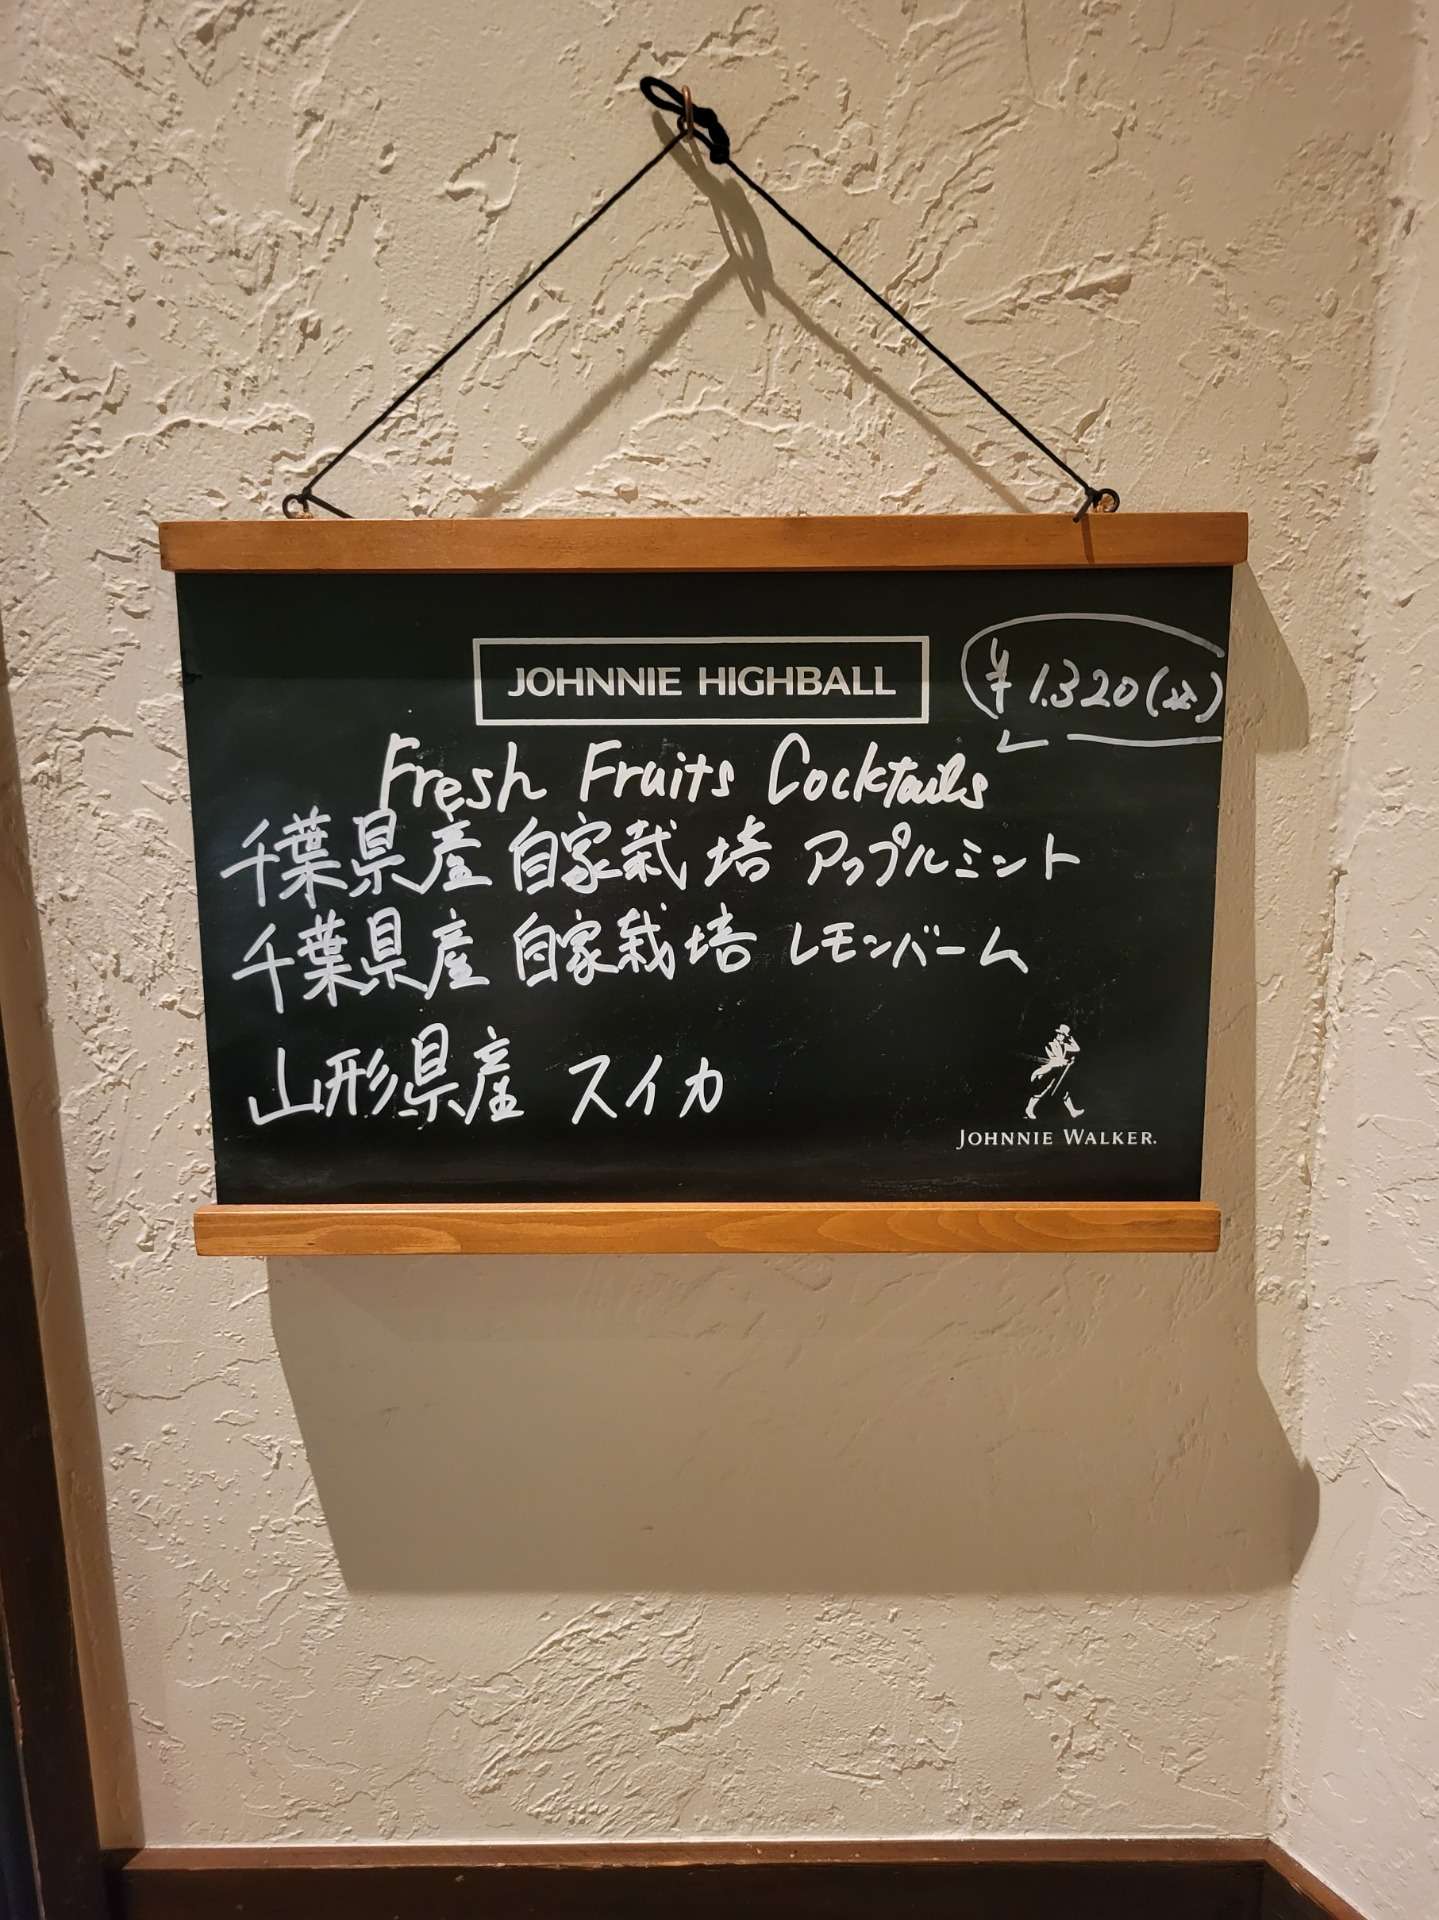 JOHNNIE HIGHBALL
¥1.320(込)
Fresh Fruits Cocktails
千葉県産 自家栽培 アップルミント
千葉県産 自家栽培 レモンバーム
山形県産 スイカ
JOHNNIE WALKER.